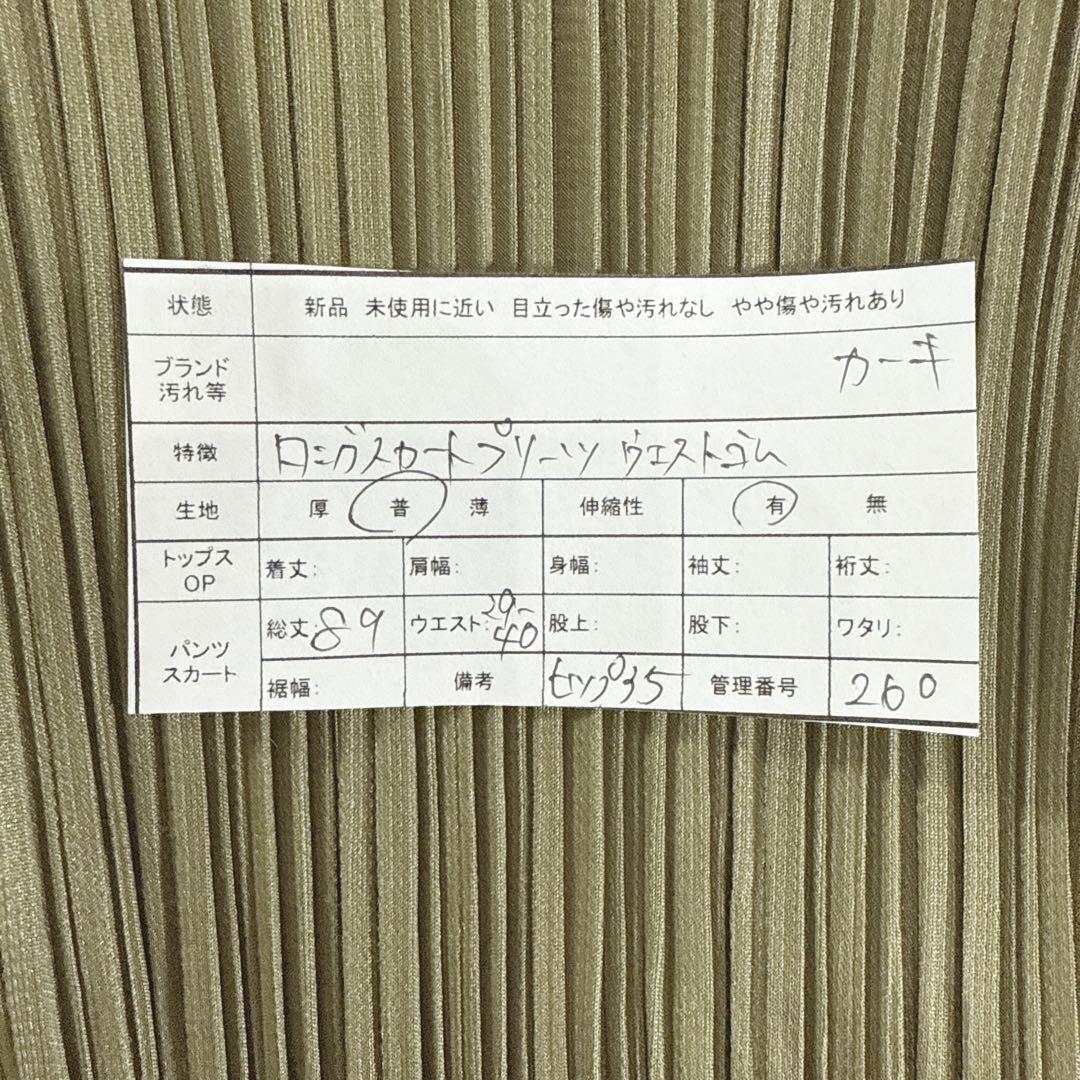 状態 新品 未使用に近い 目立った傷や汚れなし やや傷や汚れあり
ブランド
汚れ等 カーキ
特徴 ロングスカート プリーツ ウエストゴム
生地 厚 普 薄 伸縮性 有 無
トップス
OP 着丈: 肩幅: 身幅: 袖丈: 裄丈:
パンツ
スカート 総丈:89 ウエスト:29~40 股上: 股下: ワタリ:
裾幅: 備考 ヒップ35 管理番号 260